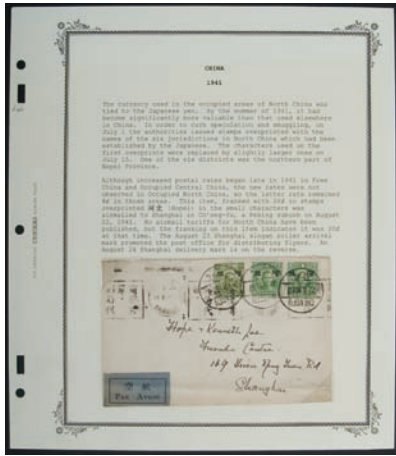 CHINA
1941
The currency used in the occupied areas of North China was
tied to the Japanese yen. By the summer of 1941, it had
become significantly more valuable than that used elsewhere
in China. In order to curb speculation and smuggling, on
July 1 the authorities issued stamps overprinted with the
names of the six jurisdictions in North China which had been
established by the Japanese. The characters used on the
first overprints were replaced by slightly larger ones on
July 15. One of the six districts was the northern part of
Hopei Province.
Although increased postal rates began late in 1941 in Free
China and Occupied Central China, the new rates were not
observed in Occupied North China, so the letter rate remained
8¢ in those areas. This item, franked with in stamps
overprinted 河北 (Hopei) in the small characters was
airmailed to Shanghai in Ch'eng-fu, a Peking suburb on August
22, 1941. No airmail tariffs for North China have been
published, but the franking on this item indicates it was
at that time. The August 23 Shanghai slogan roller arrival
mark promoted the post office for distributing flyers. An
August 24 Shanghai delivery mark is on the reverse.
Hope & Kenneth
Centre
169 Yuen Ming Yuen Rd
Shanghai
空航
PAR AVION